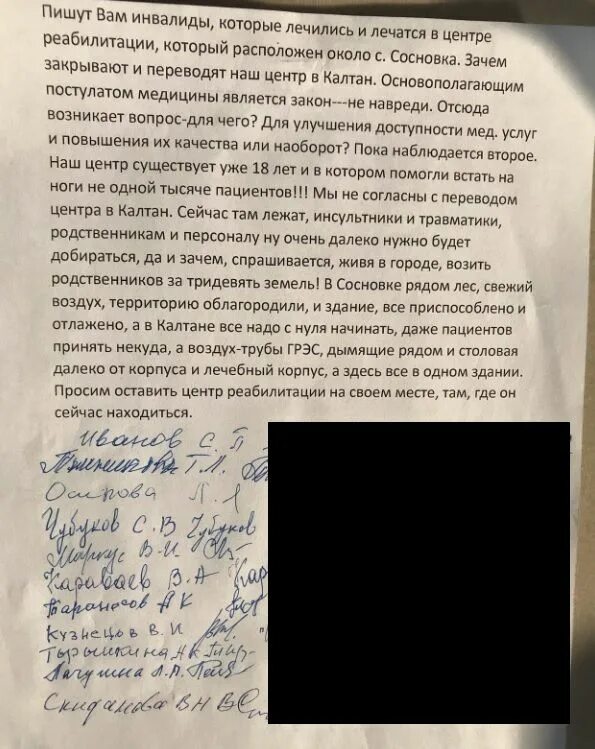 Пишут Вам инвалиды, которые лечились и лечатся в центре
реабилитации, который расположен около с. Сосновка. Зачем
закрывают и переводят наш центр в Калтан. Основополагающим
постулатом медицины является закон---не навреди. Отсюда
возникает вопрос-для чего? Для улучшения доступности мед. услуг
и повышения их качества или наоборот? Пока наблюдается второе.
Наш центр существует уже 18 лет и в котором помогли встать на
ноги не одной тысяче пациентов!!! Мы не согласны с переводом
центра в Калтан. Сейчас там лежат, инсультники и травматики,
родственникам и персоналу ну очень далеко нужно будет
добираться, да и зачем, спрашивается, живя в городе, возить
родственников за тридевять земель! В Сосновке рядом лес, свежий
воздух, территорию облагородили, и здание, все приспособлено и
отлажено, а в Калтане все надо с нуля начинать, даже пациентов
принять некуда, а воздух-трубы ГРЭС, дымящие рядом и столовая
далеко от корпуса и лечебный корпус, а здесь все в одном здании.
Просим оставить центр реабилитации на своем месте, там, где он
сейчас находиться.
Иванов С. П
Т.Л.
Осипова Л. Я
Чубуков С. В Чубуков
Маркус В. И.
Караваев В. А Кар
А К
Кузнецов В. И
Тырышкина Н К
Лагушина Л. А.
Скиданова В Н